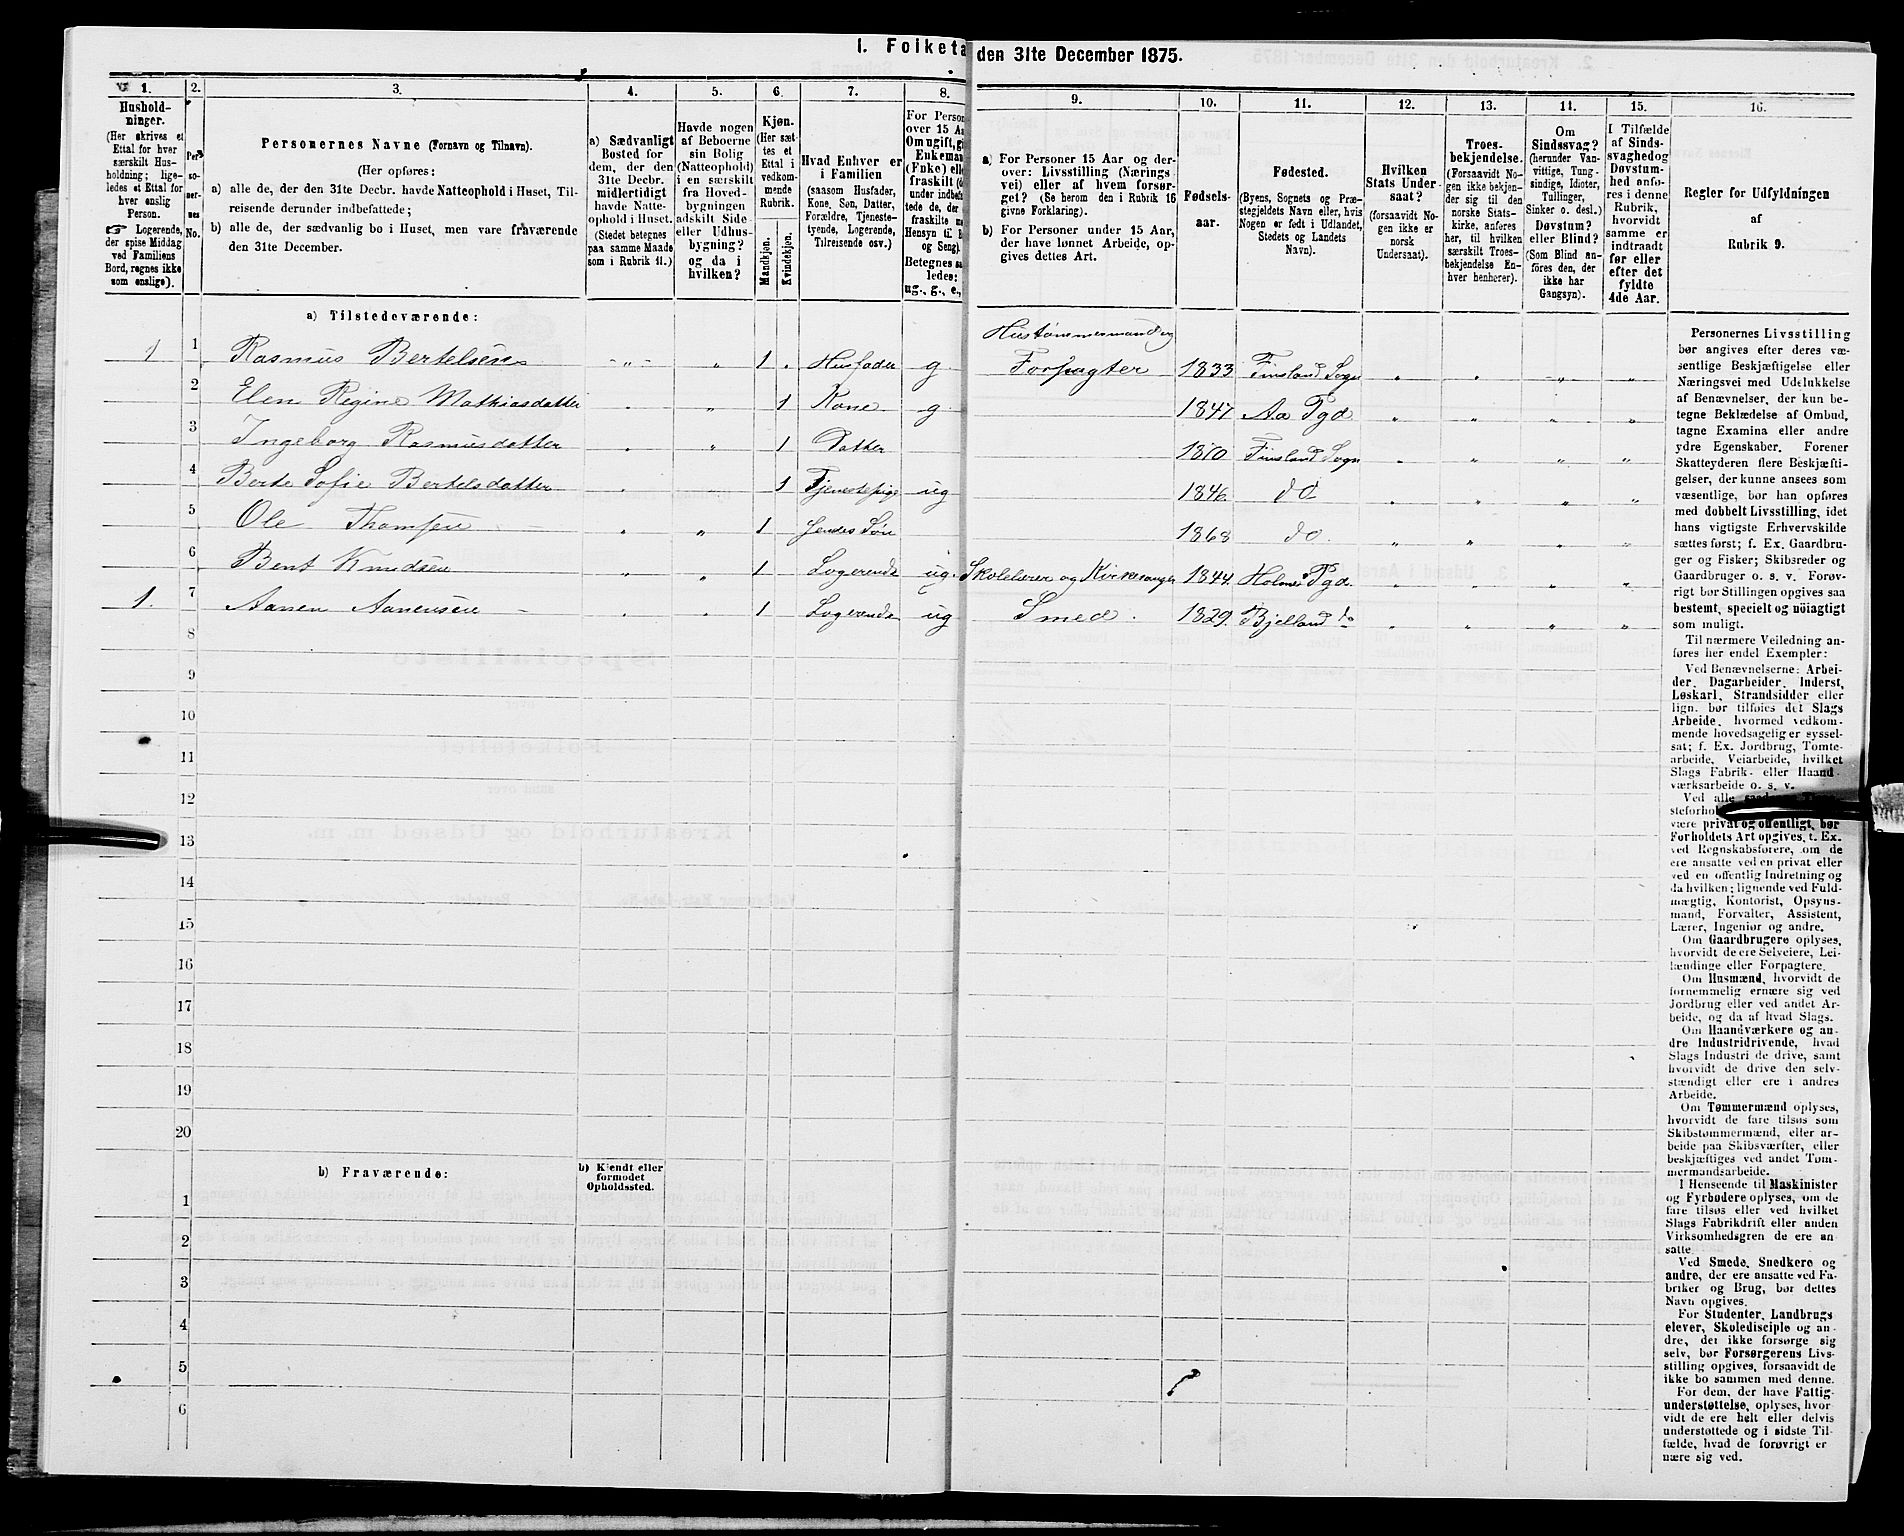 I. Folketa
den 31te December 1875.
1. 2. 3. 4. 5. 6. 7. 8. 9. 10. 11. 12. 13. 14. 15. 16.
Hushold-
ninger.
(Her skrives et
Ettal for hver
særskilt Hus-
holdning; lige-
ledes et Ettal for
hver enslig
Person.
☞ Logerende,
der spise Middag
ved Familiens
Bord, regnes ikke
som enslige).
Per-
so-
ner-
nes
No.
Personernes Navne (Fornavn og Tilnavn).
(Her opføres:
a) alle de, der den 31te Decbr. havde Natteophold i Huset, Til-
reisende derunder indbefattede;
b) alle de, der sædvanlig bo i Huset, men vare fraværende
den 31te December.
a) Sædvanligt
Bosted for
dem, der den
31te Decbr.
midlertidigt
havde Natte-
ophold i Huset.
(Stedet betegnes
paa samme Maade
som i Rubrik 11.)
Havde nogen
af Beboerne
sin Bolig
(Natteophold)
i en særskilt
fra Hoved-
bygningen
adskilt Side-
eller Udhus-
bygning?
og da i
hvilken?
Kjøn.
(Her sæt-
tes et
Ettal i
vedkom-
mende
Rubrik.
Mandkjøn.
Kvindekjøn.
Hvad Enhver er
i Familien
(saasom Husfader,
Kone, Søn, Datter,
Forældre, Tjeneste-
tyende, Logerende,
Tilreisende osv.)
For Person
over 15 Aa
Om ugift, gi
Enkeman
(Enke) elle
fraskilt (d
under indbef
tede de, der
fraskilte m
Hensyn til B
og Seng).
Betegnes sa
ledes:
ug., g., e.,
a) For Personer 15 Aar og der-
over: Livsstilling (Nærings
vei) eller af hvem forsør-
get? (Se herom den i Rubrik 16
givne Forklaring).
b) For Personer under 15 Aar,
der have lønnet Arbeide, op-
gives dettes Art.
Fødsels-
aar.
Fødested.
(Byens, Sognets og Præ-
stegjeldets Navn eller, hvis
Nogen er født i Udlandet,
Stedets og Landets
Navn).
Hvilken
Stats Under-
saat?
(forsaavidt No-
gen ikke er
norsk
Undersaat).
Troes-
bekjendelse.
(Forsaavidt No-
gen ikke bekjen-
der sig til den
norske Stats-
kirke, anføres
her, til hvilken
særskilt Troes-
bekjendelse En-
hver henhører).
Om
Sindssvag?
(herunder Van-
vittige, Tung-
sindige, Idioter,
Tullinger,
Sinker o. desl.)
Døvstum?
eller Blind?
(Som Blind an-
føres den, der
ikke har
Gangsyn).
I Tilfælde
af Sinds-
svaghed og
Døvstum-
hed anfø-
res i denne
Rubrik,
hvorvidt
samme er
indtraadt
før eller
efter det
fyldte
4de Aar.
Regler for Udfyldningen
af
Rubrik 9.
a) Tilstedeværende:
Hustømmermand og
1 1 Rasmus Bertelsen „ „ 1 Husfader g Forpagter 1833 Finsland Sogn „ „ „ „
2 Elen Regine Mathiasdatter „ „ 1 Kone g 1847 Aa Pgd „ „ „ „
3 Ingeborg Rasmusdatter „ „ 1 Datter 1870 Finsland Sogn „ „ „ „
4 Berte Sofie Bertelsdatter „ „ 1 Tjenestepige ug 1846 do „ „ „ „
5 Ole Thomsen „ „ 1 hendes Søn 1868 do „ „ „ „
6 Bent Knudsen „ „ 1 Logerende ug. Skolelærer og Kirkesanger 1844 Holme Pgd „ „ „ „
1. 7 Aanen Aanensen „ „ 1 Logerende ug Smed. 1829 Bjelland do „ „ „ „
8
9
10
11
12
13
14
15
16
17
18
19
20
b) Fraværende:
b) Kjendt eller
formodet
Opholdssted.
1
2
3
4
5
6
Personernes Livsstilling
bør angives efter deres væ-
sentlige Beskjæftigelse eller
Næringsvei med Udelukkelse
af Benævnelser, der kun be-
tegne Beklædelse af Ombud,
tagne Examina eller andre
ydre Egenskaber. Forener
Skatteyderen flere Beskjæfti-
gelser, der kunne ansees som
væsentlige, bør han opføres
med dobbelt Livsstilling, idet
hans vigtigste Erhvervskilde
sættes først; f. Ex. Gaardbru-
ger og Fisker; Skibsreder og
Gaardbruger o. s. v. Forøv-
rigt bør Stillingen opgives saa
bestemt, specielt og nöiagtigt
som muligt.
Til nærmere Veiledning an-
føres her endel Exempler:
Ved Benævnelserne: Arbei-
der, Dagarbeider, Inderst,
Løskarl, Strandsidder eller
lign. bør tilføies det Slags
Arbeide, hvormed vedkom-
mende hovedsagelig er syssel-
sat; f. Ex. Jordbrug, Tomte-
arbeide, Veiarbeide, hvilket
Slags Fabrik- eller Haand-
værksarbeide o. s. v.
Ved alle
steforhol
være privat og offentligt, bør
Forholdets Art opgives, t. Ex.
ved Regnskabsførere, om de
ere ansatte ved en privat eller
ved en offentlig Indretning og
da hvilken; lignende ved Fuld-
mægtig, Kontorist, Opsyns-
mand, Forvalter, Assistent,
Lærer, Ingeniør og andre.
Om Gaardbrugere oplyses,
hvorvidt de ere Selveiere, Lei-
lændinge eller Forpagtere.
Om Husmænd, hvorvidt de
fornemmelig ernære sig ved
Jordbrug eller ved andet Ar-
beide, og da af hvad Slags.
Om Haandværkere og an-
dre Industridrivende, hvad
Slags Industri de drive, samt
hvorvidt de drive den selv-
stændigt eller ere i andres
Arbeide.
Om Tømmermænd oplyses,
hvorvidt de fare tilsøs som
Skibstømmermænd, eller ar-
beide paa Skibsværfter, eller
beskjæftiges ved andet Tøm-
mermandsarbeide.
I Henseende til Maskinister
og Fyrbødere oplyses, om de
fare tilsøs eller ved hvilket
Slags Fabrikdrift eller anden
Virksomhedsgren de ere an-
satte.
Ved Smede, Snedkere og
andre, der ere ansatte ved Fa-
briker og Brug, bør dettes
Navn opgives.
For Studenter, Landbrugs-
elever, Skoledisciple og an-
dre, der ikke forsørge sig
selv, bør Forsørgerens Livs-
stilling opgives, forsaavidt de
ikke bo sammen med denne.
For dem, der have Fattig-
understøttelse, oplyses, hvor-
vidt de ere helt eller delvis
understøttede og i sidste Til-
fælde, hvad de forøvrigt er-
nære sig ved.